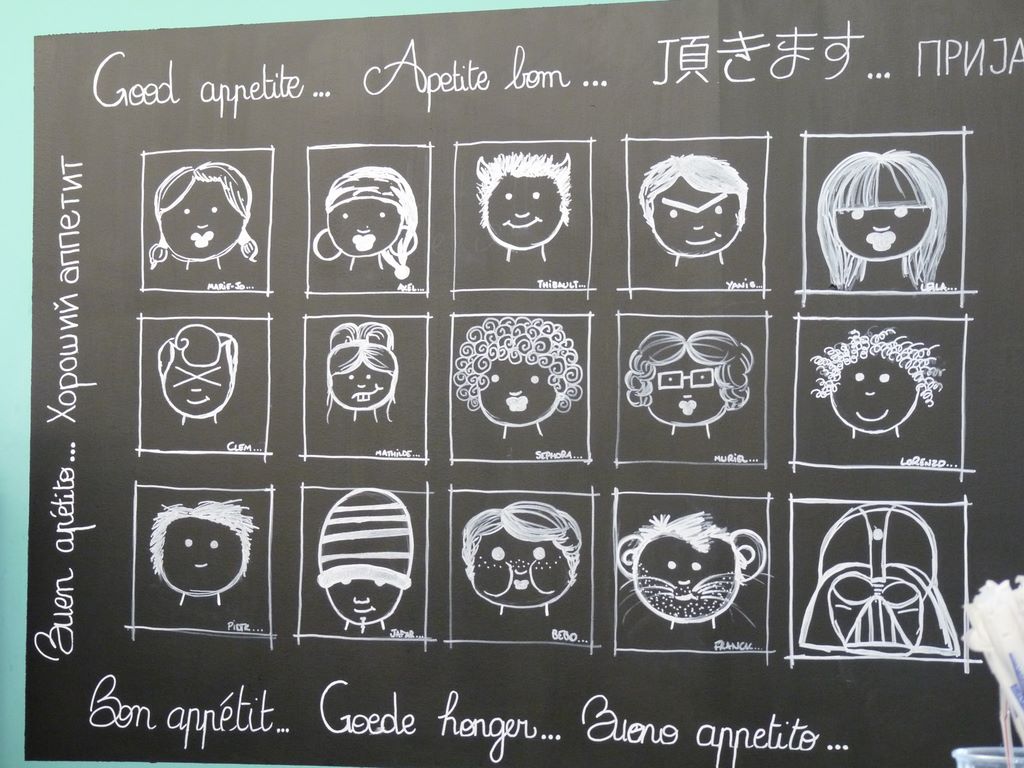 Good appetite... Apetite bom... 頂きます... ПРИЈА
Buen apétito... Хороший аппетит
MARIE-JO... AXEL... THIBAULT... YANIS... LEILA...
CLEM... MATHILDE... SEPHORA... MURIEL... LORENZO...
PIOTR... JAFAR... BEBO... FRANCK...
Bon appétit... Goede honger... Buono appetito...